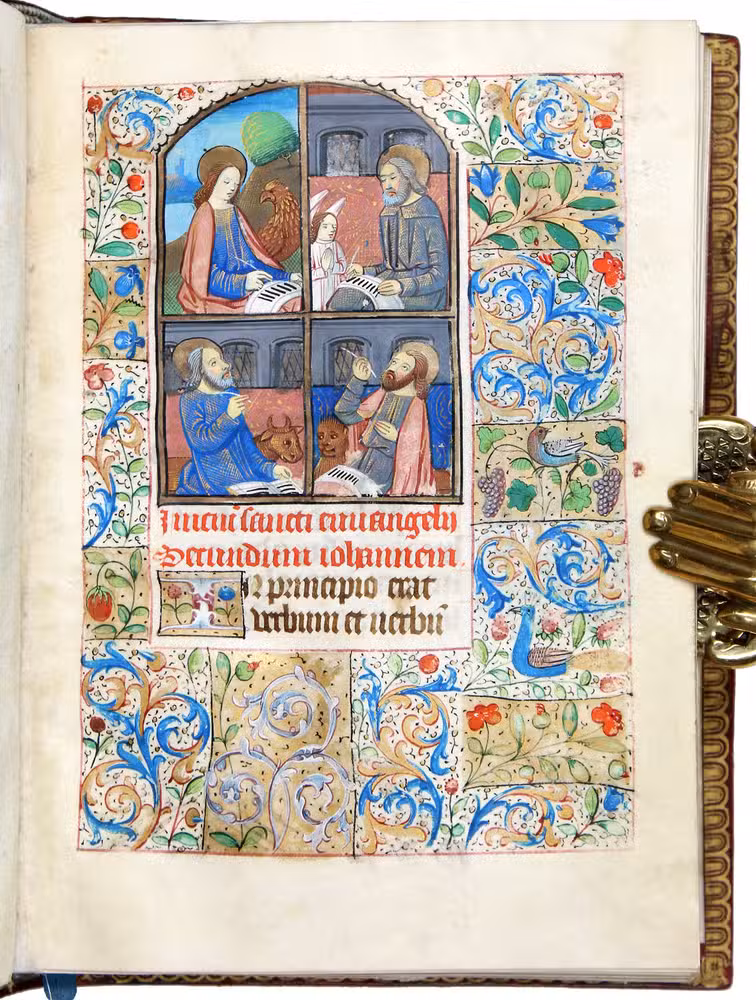 Iniciū sancti euuangelij
Secundum iohannem.
In principio erat
verbum et uerbū